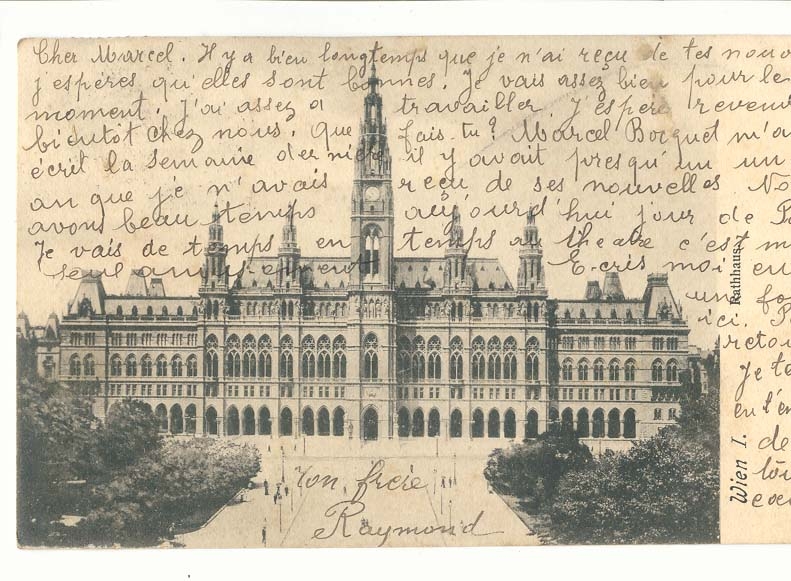 Cher Marcel. Il y a bien longtemps que je n'ai reçu de tes nouv
j'espères qu'elles sont bonnes. Je vais assez bien pour le
moment. J'ai assez a travailler. J'espère revenir
bientôt chez nous. Que fais-tu? Marcel Bocquet m'a
écrit la semaine dernière il y avait presqu'un un
an que je n'avais reçu de ses nouvelles No
avons beau temps aujourd'hui jour de Pa
Je vais de temps en temps au theatre c'est m
seul amusement Ecris moi en
un fo
ici. P
retou
je te
en l'en
de
loi
coeu
Ton frère
Raymond
Rathhaus.
Wien I.